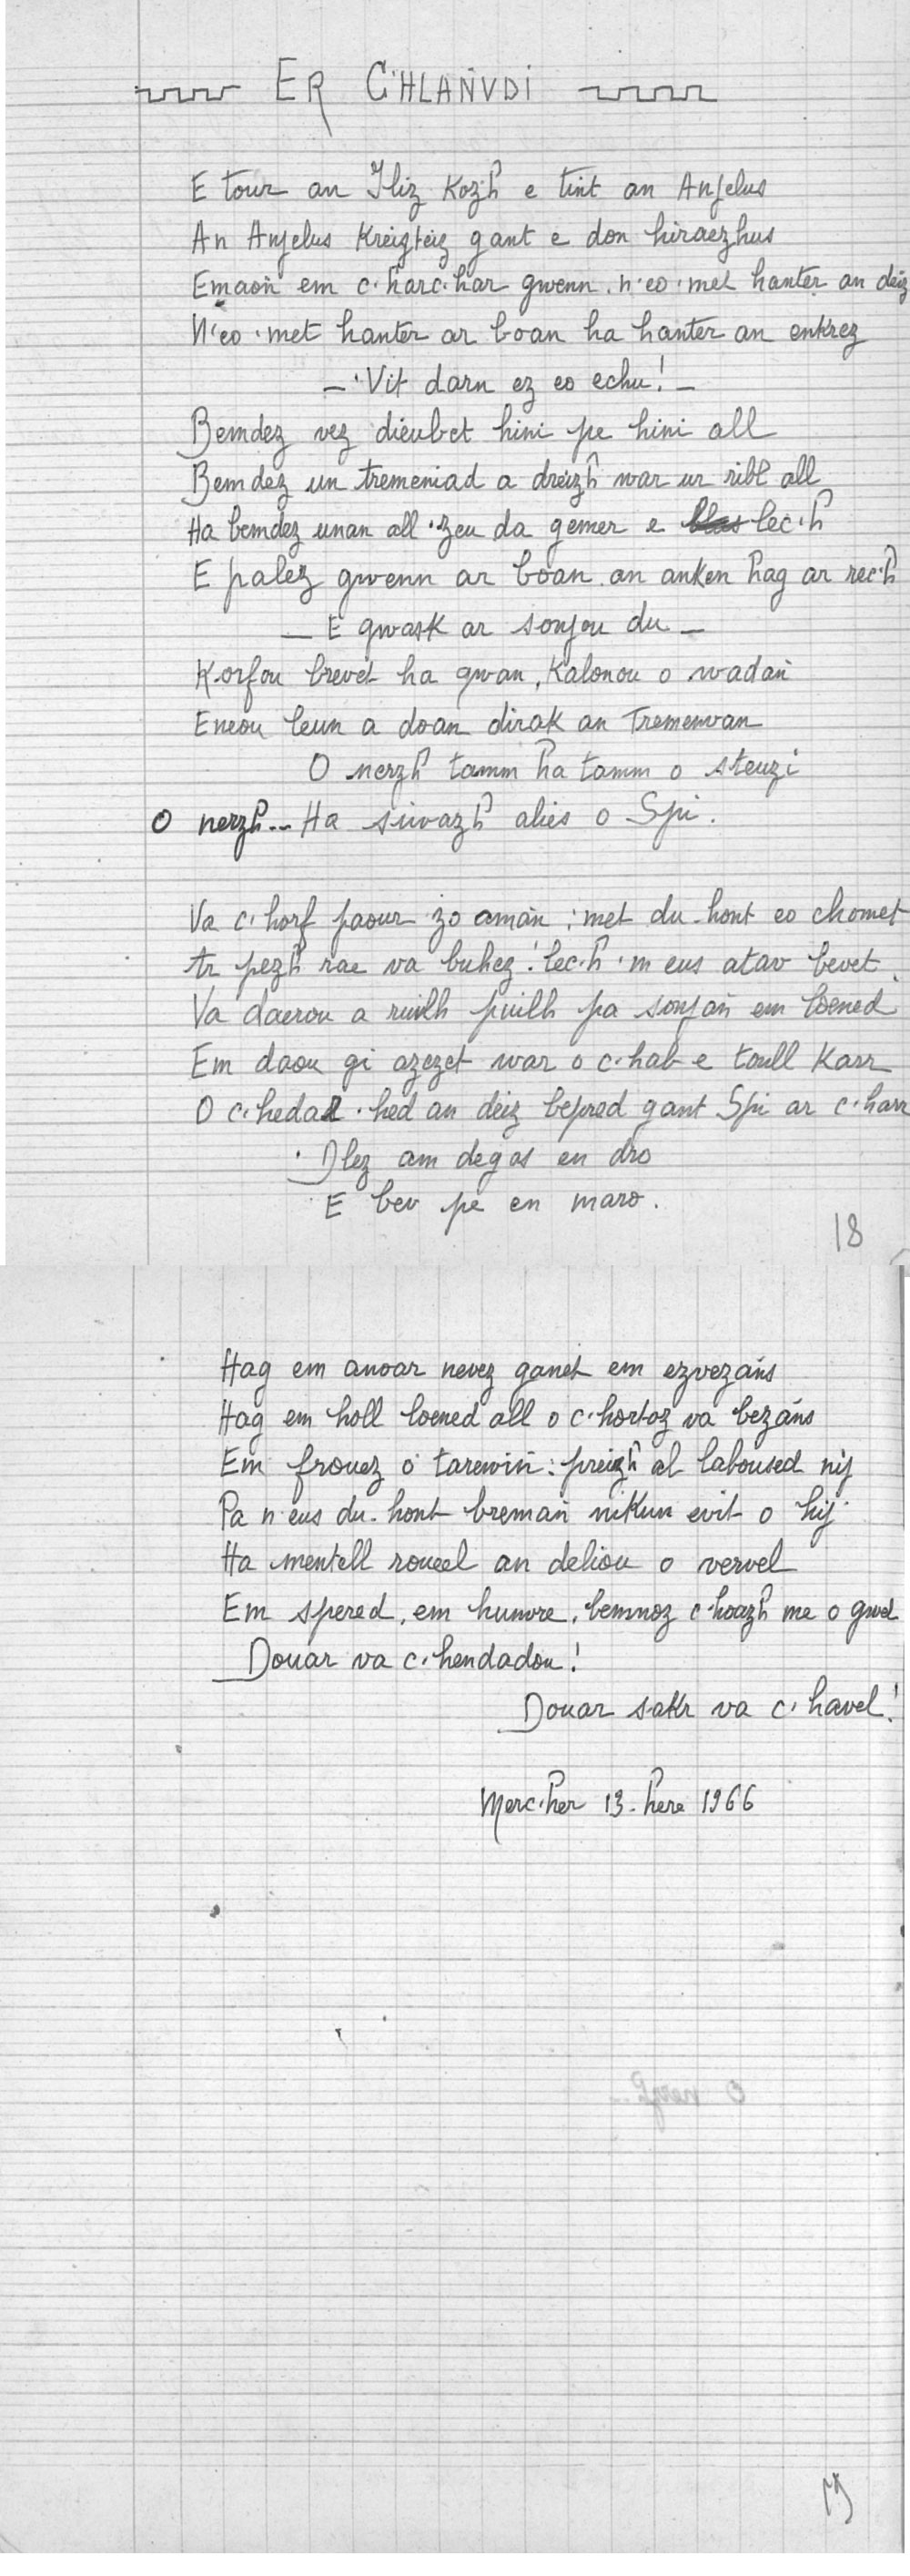 ER C'HLAÑVDI
E tour an Iliz Kozh e tint an Anjelus
An Anjelus Kreizteiz gant e don hiraezhus
Emaon em c'harc'har gwenn. n'eo met hanter an deiz
N'eo met hanter ar boan ha hanter an enkrez
— 'Vit darn ez eo echu! —
Bemdez vez dieubet hini pe hini all
Bemdez un tremeniad a dreizh war ur ribl all
Ha bemdez unan all 'zeu da gemer e lec'h
E palez gwenn ar boan an anken hag ar rec'h
— E gwask ar sonjou du —
Korfou brevet ha gwan, Kalonou o wadañ
Eneou leun a doan dirak an Tremenvan
O nerzh tamm ha tamm o steuzi
O nerzh... Ha siwazh alies o Spi.
Va c'horf paour zo amañ : met du-hont eo chomet
Ar pezh rae va buhez! lec'h 'm eus atav bevet
Va daerou a ruilh puilh pa sonjañ em loened
Em daou gi azezet war o c'hab e toull Karr
O c'hedal 'hed an deiz bepred gant Spi ar c'harr
Dlez am degas en dro
E bev pe en maro.
18
Hag em anoar nevez ganet em ezvezañs
Hag em holl loened all o c'hortoz va bezañs
Em frouez o tarewiñ : preizh al laboused nij
Pa n'eus du-hont bremañ nikun evit o hij
Ha mentell roueel an deliou o vervel
Em spered, em hunvre, bemnoz c'hoazh me o gwel
Douar va c'hendadou!
Douar sakr va c'havel!
Merc'her 13-here 1966
19